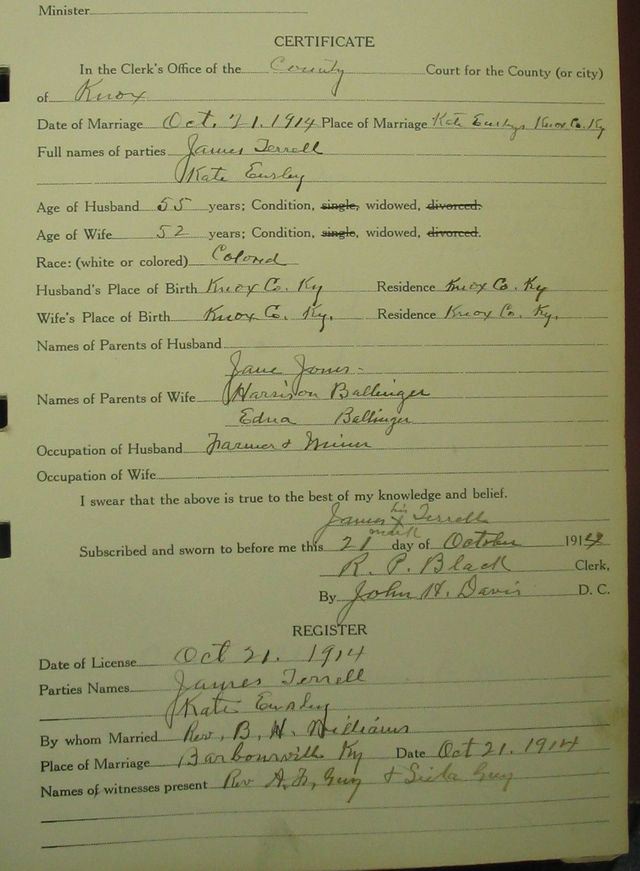 Minister
CERTIFICATE
In the Clerk's Office of the County Court for the County (or city)
of Knox
Date of Marriage Oct. 21. 1914 Place of Marriage Kate Knox Co. Ky
Full names of parties James Terrell
Kate Ensley
Age of Husband 55 years; Condition, single, widowed, divorced.
Age of Wife 52 years; Condition, single, widowed, divorced.
Race: (white or colored) Colored
Husband's Place of Birth Knox Co. Ky Residence Knox Co. Ky
Wife's Place of Birth Knox Co. Ky. Residence Knox Co. Ky.
Names of Parents of Husband
Jane Jones
Names of Parents of Wife Harrison Ballinger
Edna Ballinger
Occupation of Husband Farmer & Miner
Occupation of Wife
I swear that the above is true to the best of my knowledge and belief.
his
James X Terrell
mark
Subscribed and sworn to before me this 21 day of October 1914
R. P. Black Clerk,
By John H. Davis D. C.
REGISTER
Date of License Oct 21. 1914
Parties Names James Terrell
Kate Ensley
By whom Married Rev. B. H. Williams
Place of Marriage Barbourville Ky Date Oct 21. 1914
Names of witnesses present Rev Guy & Guy